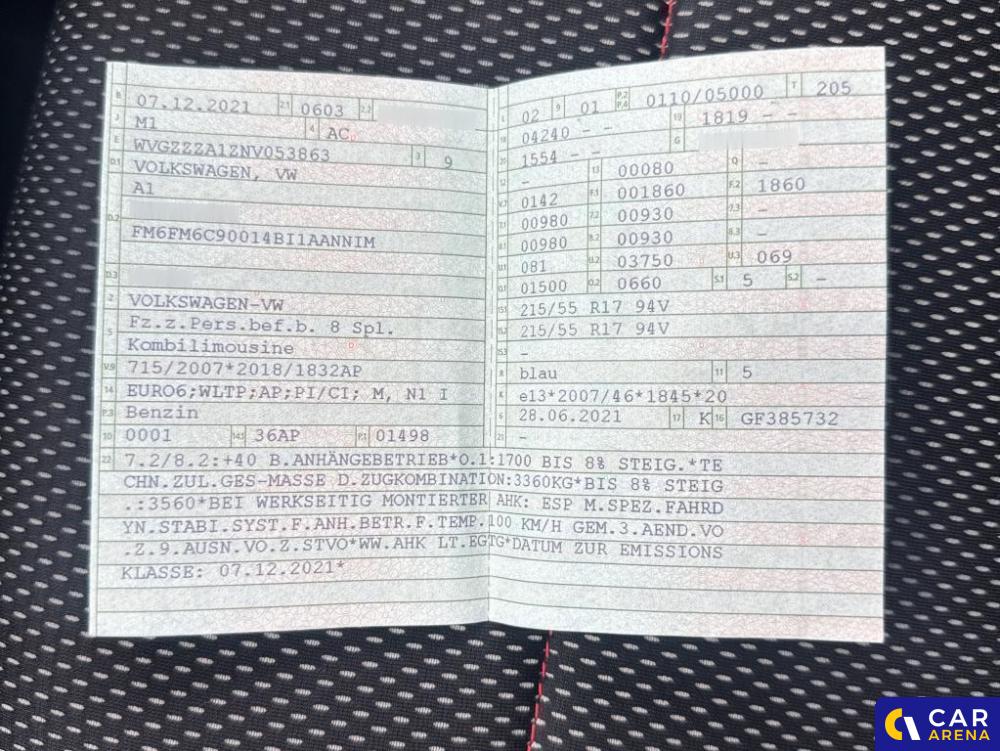 B 07.12.2021 2.1 0603 2.2
J M1 4 AC
E WVGZZZA1ZNV053863 3 9
D.1 VOLKSWAGEN, VW
A1
D.2
FM6FM6C90014BI1AANNIM
D.3
2 VOLKSWAGEN-VW
5 Fz.z.Pers.bef.b. 8 Spl.
Kombilimousine
V.9 715/2007*2018/1832AP
14 EURO6;WLTP;AP;PI/CI; M, N1 I
P.3 Benzin
10 0001 14.1 36AP P.1 01498
L 02 9 01 P.2 P.4 0110/05000 T 205
18 04240 – – 19 1819 – –
20 1554 – – G
12 – 13 00080 Q –
V.7 0142 F.1 001860 F.2 1860
7.1 00980 7.2 00930 7.3 –
8.1 00980 8.2 00930 8.3 –
U.1 081 U.2 03750 U.3 069
O.1 01500 O.2 0660 S.1 5 S.2 –
15.1 215/55 R17 94V
15.2 215/55 R17 94V
15.3 –
R blau 11 5
K e13*2007/46*1845*20
6 28.06.2021 17 K 16 GF385732
21 –
22 7.2/8.2:+40 B.ANHÄNGEBETRIEB*O.1:1700 BIS 8% STEIG.*TE
CHN.ZUL.GES-MASSE D.ZUGKOMBINATION:3360KG*BIS 8% STEIG
.:3560*BEI WERKSEITIG MONTIERTER AHK: ESP M.SPEZ.FAHRD
YN.STABI.SYST.F.ANH.BETR.F.TEMP.100 KM/H GEM.3.AEND.VO
.Z.9.AUSN.VO.Z.STVO*WW.AHK LT.EGTG*DATUM ZUR EMISSIONS
KLASSE: 07.12.2021*
CAR
ARENA